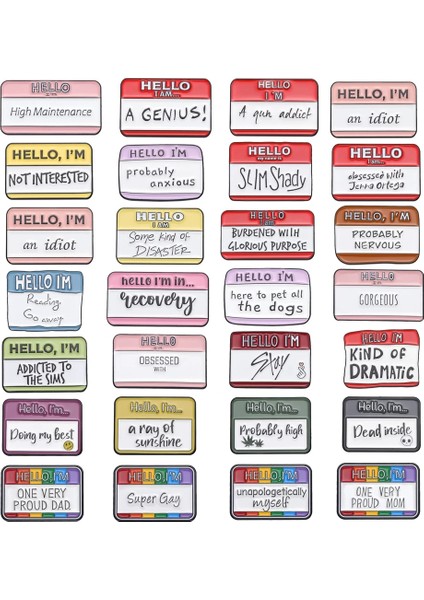 HELLO
High Maintenance
HELLO
I AM...
A GENIUS!
HELLO
I'M
A gun addict
HELLO, I'M
an idiot
HELLO, I'M
NOT INTERESTED
HELLO I'M
probably
anxious
HELLO
my name is
SLIM Shady
HELLO
I am...
obsessed with
Jenna Ortega
HELLO, I'M
an idiot
HELLO
I AM
Some kind of
DISASTER
HELLO
I am
BURDENED WITH
GLORIOUS PURPOSE
HELLO, I'M
PROBABLY
NERVOUS
HELLO I'M
Reading
Go away
hello i'm in...
recovery
HELLO I'M
here to pet all
the dogs
HELLO
GORGEOUS
HELLO, I'M
ADDICTED TO
THE SIMS
HELLO
OBSESSED
WITH
HELLO I'M
Stay
HELLO I'M
KIND OF
DRAMATIC
Hello, I'm...
Doing my best
Hello, I'm...
a ray of
sunshine
Hello, I'm...
Probably high
Hello, I'm...
Dead inside
HELLO, I'M
ONE VERY
PROUD DAD
HELLO, I'M
Super Gay
HELLO, I'M
unapologetically
myself
HELLO, I'M
ONE VERY
PROUD MOM